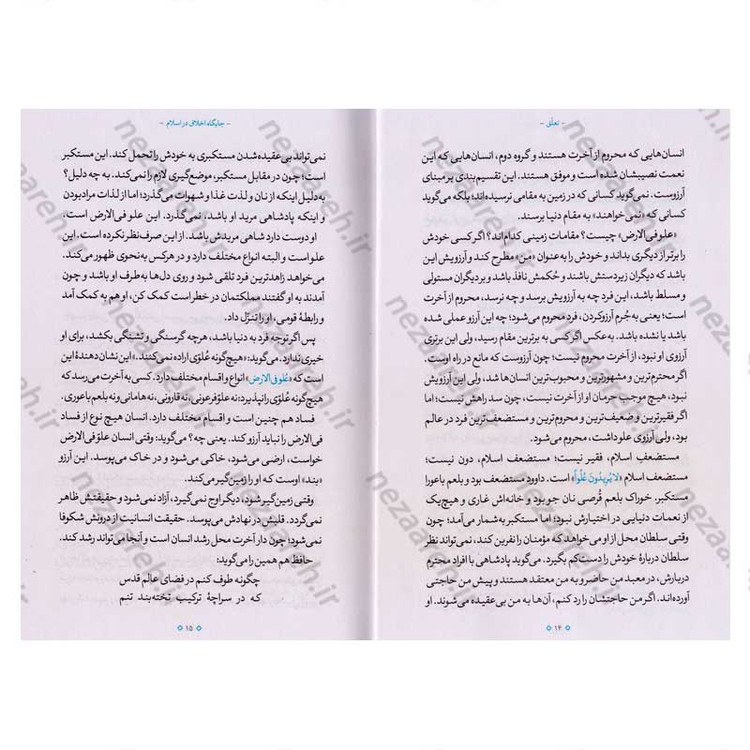 - تعلّق -
انسان‌هایی که محروم از آخرت هستند و گروه دوم، انسان‌هایی که این
نعمت نصیبشان شده است و موفق هستند. این تقسیم‌بندی بر مبنای
آرزوست. نمی‌گوید کسانی که در زمین به مقامی نرسیده‌اند؛ بلکه می‌گوید
کسانی که «نمی‌خواهند» به مقام دنیا برسند.
«علو فی الارض» چیست؟ مقامات زمینی کدام‌اند؟ اگر کسی خودش
را برتر از دیگری بداند و خودش را به‌عنوان «من» مطرح کند و آرزویش این
باشد که دیگران زیردستش باشند و حُکمش نافذ باشد و بر دیگران مستولی
و مسلط باشد، این فرد چه به آرزویش برسد و چه نرسد، محروم از آخرت
است؛ یعنی به جُرم آرزو کردن، فرد محروم می‌شود؛ چه این آرزو عملی شده
باشد یا نشده باشد. به‌عکس اگر کسی به برترین مقام رسید، ولی این برتری
آرزوی او نبود، از آخرت محروم نیست؛ چون آرزوست که مانع در راه اوست.
اگر محترم‌ترین و مشهورترین و محبوب‌ترین انسان‌ها شد، ولی آرزویش این
نبود، هیچ موجب حرمان او از آخرت نیست، چون سد راهش نیست؛ اما
اگر فقیرترین و ضعیف‌ترین و محروم‌ترین و مستضعف‌ترین فرد در عالم
بود، ولی آرزوی علو داشت، محروم می‌شود.
مستضعف اسلام، فقیر نیست؛ مستضعف اسلام، دون نیست؛
مستضعف اسلام «لا یُریدُونَ عُلُوّاً» است. داوود مستضعف بود و بلعم باعورا
مستکبر. خوراک بلعم قُرصی نان جو بود و خانه‌اش غاری و هیچ‌یک
از نعمات دنیایی در اختیارش نبود؛ اما مستکبر به‌شمار می‌آمد؛ چون
وقتی سلطان محل از او می‌خواهد که مؤمنان را نفرین کند، نمی‌تواند نظر
سلطان دربارهٔ خودش را دست‌کم بگیرد. می‌گوید پادشاهی با افراد محترم
دربارش، در معبد من حاضر و به من معتقد هستند و پیش من حاجتی
آورده‌اند. اگر من حاجتشان را رد کنم، آن‌ها به من بی‌عقیده می‌شوند. او
۱۴
- جایگاه اخلاق در اسلام -
نمی‌تواند بی‌عقیده شدن مستکبری به خودش را تحمل کند. این مستکبر
است؛ چون در مقابل مستکبر، موضع‌گیری لازم را نمی‌کند. به چه دلیل؟
به دلیل اینکه از نان و لذت غذا و شهوات می‌گذرد؛ اما از لذات مراد بودن
و اینکه پادشاهی مرید او باشد، نمی‌گذرد. این علو فی الارض است.
او دوست دارد شاهی مریدش باشد. از این صرف‌نظر نکرده است، این
علو است و البته انواع مختلف دارد و در هرکس به‌نحوی ظهور می‌کند.
می‌خواهد زاهدترین فرد تلقی شود و روی دل‌ها به‌طرف او باشد و چون
آمدند به او گفتند مملکتمان در خطر است کمک کن، او هم به کمک آمد
و رابطهٔ قومی، او را تنزّل داد.
پس اگر توجه فرد به دنیا باشد، هرچه گرسنگی و تشنگی بکشد، برای او
خیری ندارد. می‌گوید: «هیچ‌گونه عُلوّی اراده نمی‌کنند.» این نشان‌دهندهٔ این
است که «عُلو فی الارض» انواع و اقسام مختلف دارد. کسی به آخرت می‌رسد که
هیچ‌گونه عُلوّی را نپذیرد؛ نه علو فرعونی، نه قارونی، نه هامانی و نه بلعم باعوری.
فساد هم چنین است و اقسام مختلف دارد. انسان هیچ نوع از فساد
فی الارض را نباید آرزو کند. یعنی چه؟ می‌گوید: وقتی انسان علوّ فی الارض
خواست، ارضی می‌شود، خاکی می‌شود و در خاک می‌پوسد. این آرزو
«بند» اوست که او را زمین‌گیر می‌کند.
وقتی زمین‌گیر شود، دیگر اوج نمی‌گیرد، آزاد نمی‌شود و حقیقتش ظاهر
نمی‌گردد. قلبش در نهادش می‌پوسد. حقیقت انسانیت از درونش شکوفا
نمی‌شود؛ چون دار آخرت محل رشد انسان است و آنجا می‌تواند رشد کند.
حافظ هم همین را می‌گوید:
چگونه طوف کنم در فضای عالم قدس
که در سراچهٔ ترکیب تخته‌بند تنم
۱۵
nezaareh.ir